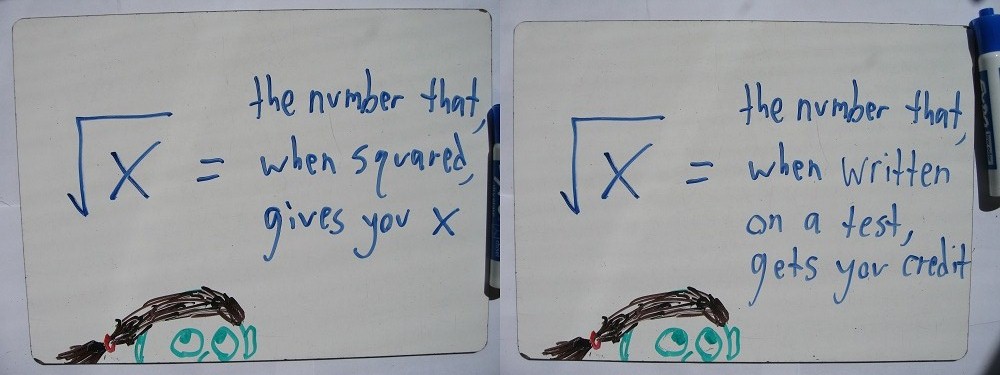 √X =
the number that,
when squared,
gives you x
√X =
the number that,
when written
on a test,
gets you credit